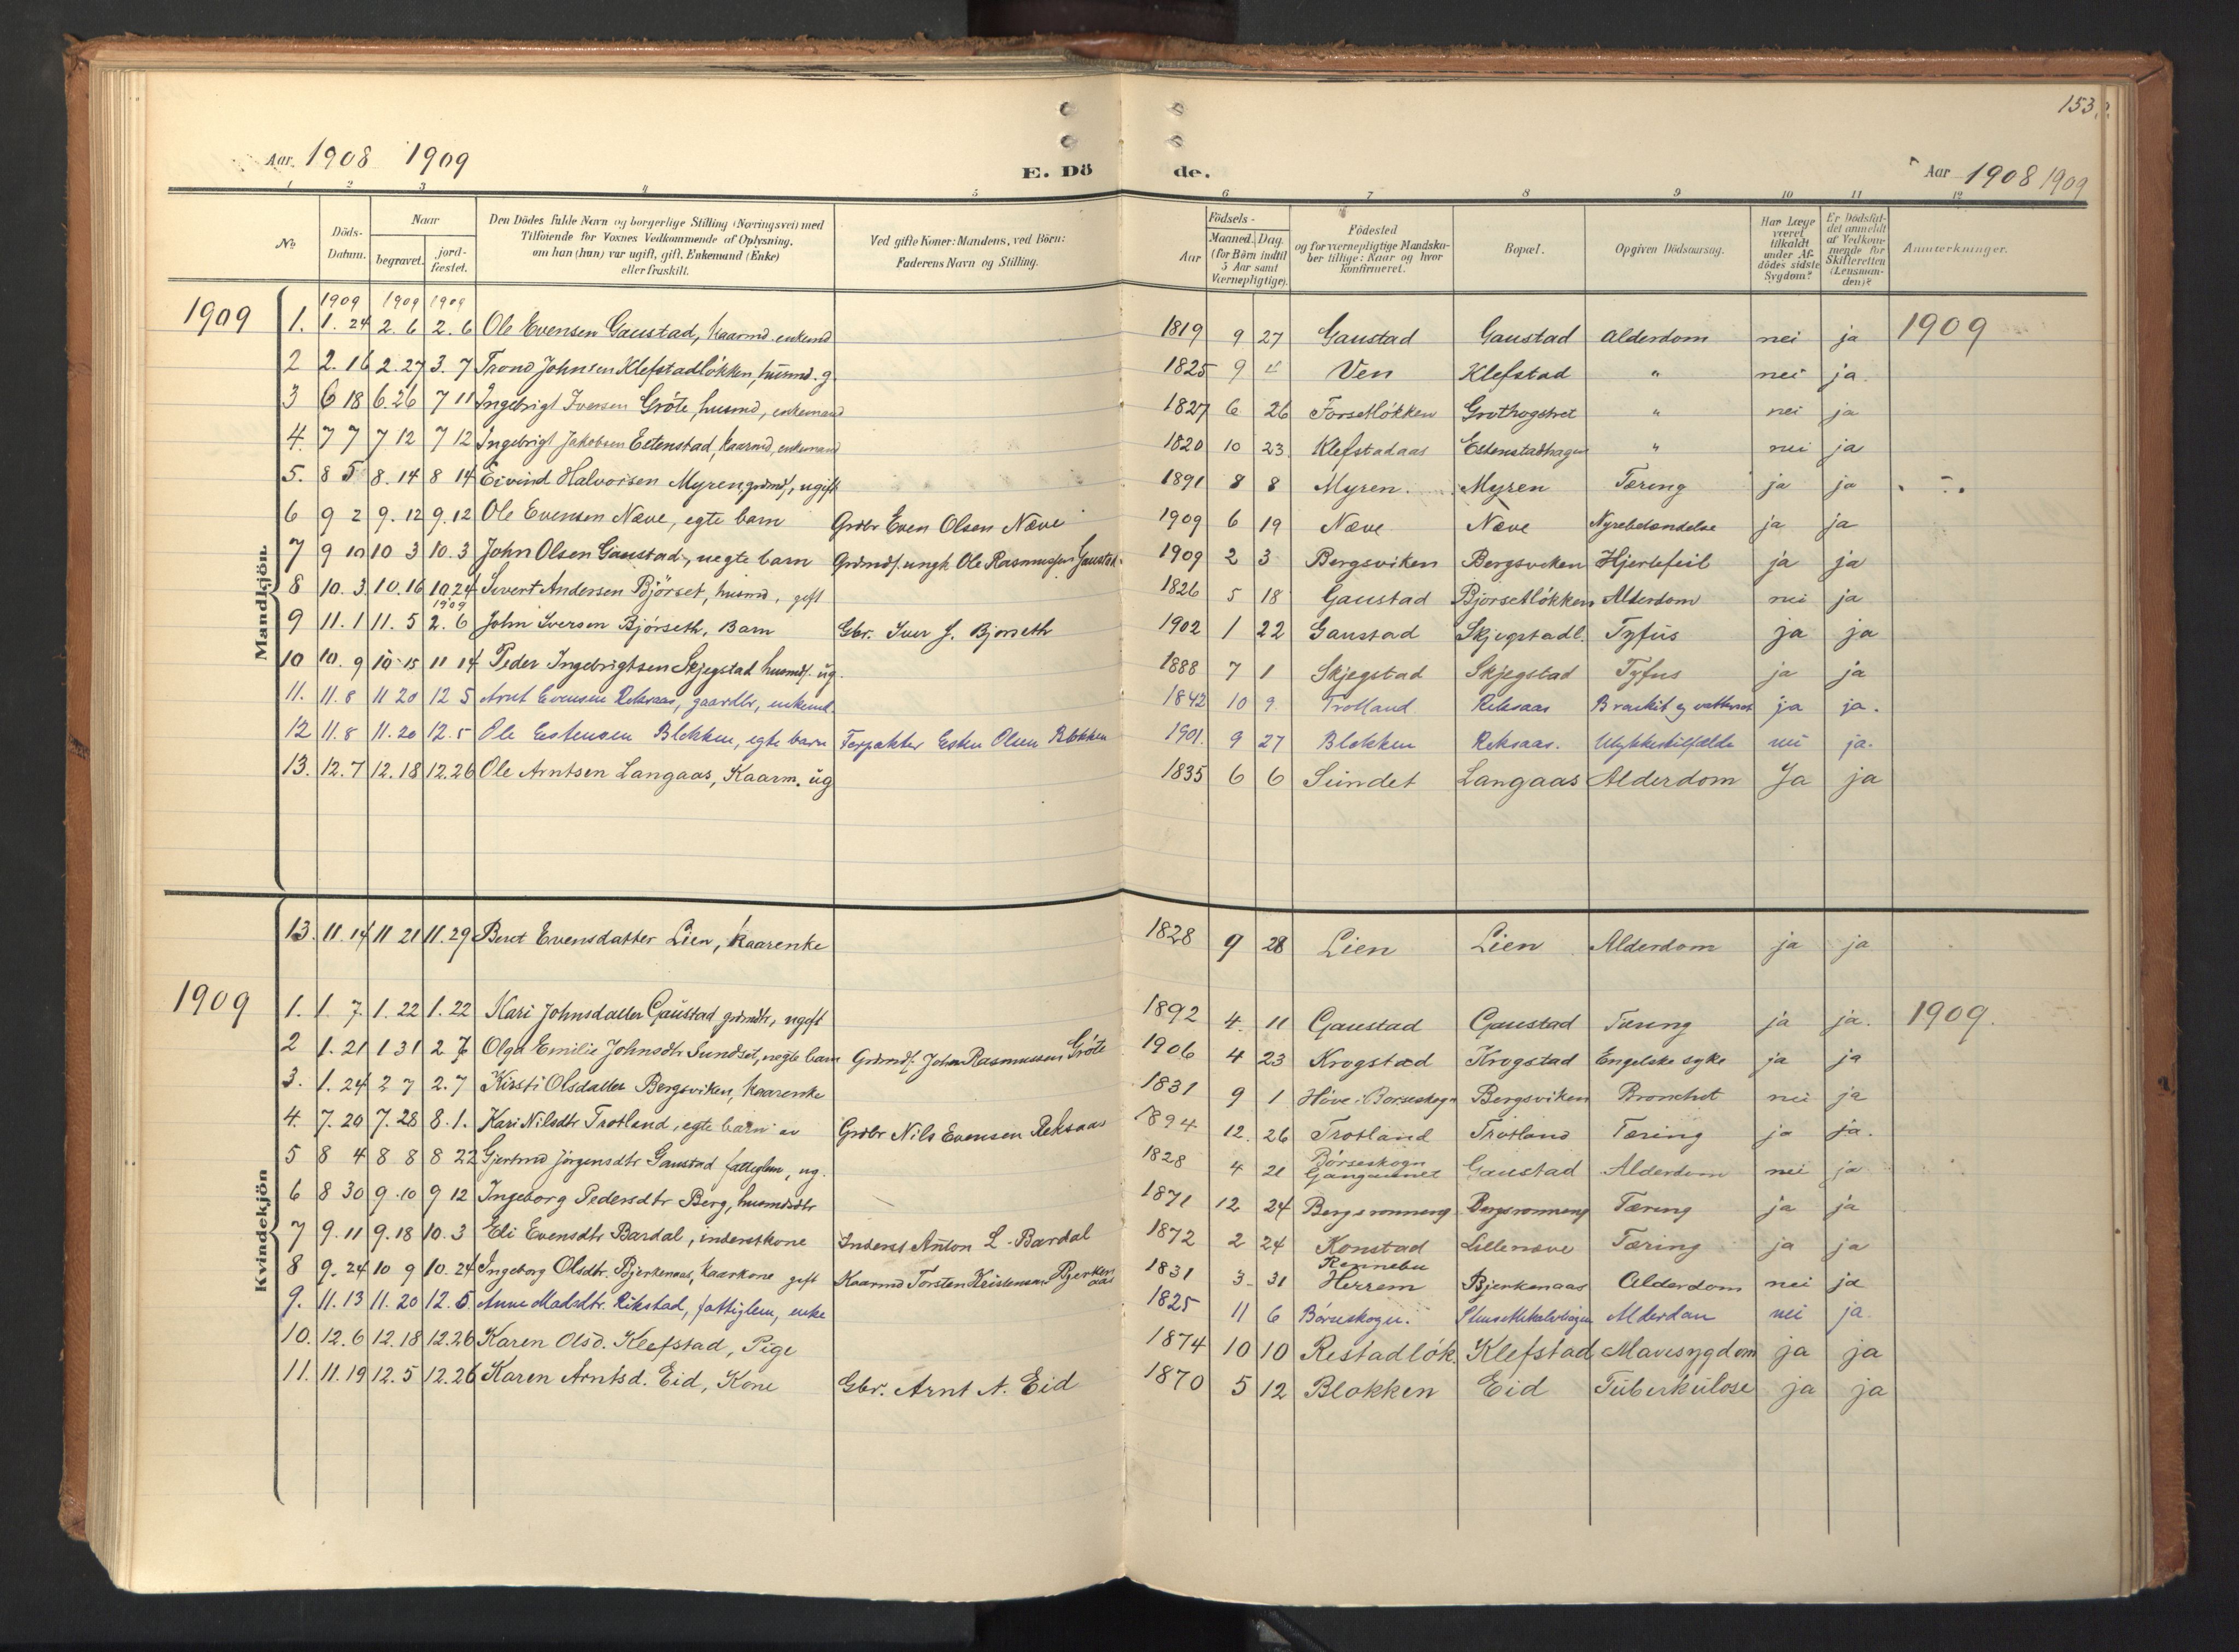 153
Aar 1908 1909 E. Dö de. Aar 1908 1909
1 2 3 4 5 6 7 8 9 10 11 12
№ Döds-Datum. Naar begravet. jord-fæstet. Den Dödes fulde Navn og borgerlige Stilling (Næringsvei) med Tilföiende for Voxnes Vedkommende af Oplysning, om han (hun) var ugift, gift, Enkemand (Enke) eller fraskilt. Ved gifte Koner: Mandens, ved Börn: Faderens Navn og Stilling. Födsels- Aar Maaned. Dag. (for Börn indtil 5 Aar samt Værnepligtige). Födested og for værnepligtige Mandskaber tillige: Naar og hvor konfirmeret. Bopæl. Opgiven Dödsaarsag. Har Læge været tilkaldt under Afdödes sidste Sygdom? Er Dödsfaldet anmeldt af Vedkommende for Skifteretten (Lensmanden)? Anmærkninger.
Mandkjön.
1909 1909 1909 1909
1. 1. 24 2. 6 2. 6 Ole Evensen Gaustad, kaarmd. enkemd 1819 9 27 Gaustad Gaustad Alderdom nei ja 1909
2 2. 16 2. 27 3. 7 Trond Johnsen Klefstadløkken, husmd. g. 1825 9 Ven Klefstad " nei ja.
3 6 18 6. 26 7 11 Ingebrigt Iversen Grøte, husmd, enkemand 1827 6 26 Forsetløkken Grøthogstret " nei ja
4. 7 7 7 12 7 12 Ingebrigt Jakobsen Estenstad, kaarmd, enkemand 1820 10 23. Klefstadaas Estenstadhagen " nei ja
5. 8 5 8. 14 8 14 Eivind Halvorsen Myren, grdmds., ugift 1891 8 8 Myren. Myren Tæring ja ja
6 9 2 9. 12 9. 12 Ole Evensen Næve, egte barn Grdbr Even Olsen Næve 1909 6 19 Næve Næve Nyrebetændelse ja ja
7 9 10 10 3 10. 3 John Olsen Gaustad, uegte barn Grdmds. ungk Ole Rasmussen Gaustad. 1909 2 3 Bergsviken Bergsviken Hjertefeil ja ja
8 10. 3. 10. 16 10 24 Sivert Andersen Bjørset, husmd, gift 1826 5 18 Gaustad Bjørsetløkken Alderdom nei ja
1909
9 11. 1 11. 5 2. 6 John Iversen Bjørseth, Barn Gbr. Iver J. Bjørseth 1902 1 22 Gaustad Skjegstadl. Tyfus ja ja
10 10. 9 10. 15 11 14 Peder Ingebrigtsen Skjegstad husmds. ug. 1888 7 1 Skjegstad Skjegstad Tyfus ja ja
11. 11. 8 11 20 12 5 Arnt Evensen Reksaas, gaardbr, enkemd. 1842 10 9. Trotland Reksaas ja ja.
12 11. 8 11. 20 12. 5 Ole Estensen Blokken, egte barn Forpakter Esten Olsen Blokken 1901. 9 27 Blokken Reksaas. Ulykkestilfælde nei ja.
13. 12. 7 12. 18 12. 26 Ole Arntsen Langaas, Kaarm. ug 1835 6 6 Sundet Langaas Alderdom Ja ja
Kvindekjön
13. 11. 14 11 21 11. 29 Beret Evensdatter Lien, kaarenke 1828 9 28 Lien Lien Alderdom ja ja
1909 1. 1. 7. 1. 22 1. 22 Kari Johnsdatter Gaustad grdmdtr, ugift 1892 4. 11 Gaustad Gaustad Tæring ja ja. 1909.
2 1. 21 1 31 2 7 Olga Emilie Johnsdtr Sundset, uegte barn Grdmds. John Rasmussen Grøte 1906 4 23 Krogstad Krogstad Engelske syke ja ja
3. 1. 24 2 7 2. 7 Kirsti Olsdatter Bergsviken, kaarenke 1831 9 1 Høve i Børseskogn Bergsviken Bronchit nei ja
4. 7. 20 7. 28 8. 1. Kari Nilsdtr Trotland, egte barn av Grdbr Nils Evensen Reksaas 1894 12. 26 Trotland Trotland Tæring ja ja.
5 8 4 8 8 8 22 Gjertrud Jørgensdtr Gaustad fattiglem, ug. 1828 4 21 Børseskogn Gangaunet Gaustad Alderdom nei ja
6 8 30 9. 10 9 12 Ingeborg Pedersdtr Berg, husmdsdtr 1871 12 24 Bergsrønneng Bergsrønneng Tæring ja ja
7 9. 11 9. 18 10. 3 Eli Evensdtr Bardal, inderstkone Inderst Anton L. Bardal 1872 2 24 Konstad Lillenæve Tæring ja ja
8 9. 24 10 9 10. 24 Ingeborg Olsdtr. Bjerkenaas, kaarkone gift Kaarmd Torsten Kristensen Bjerkenaas 1831 3. 31 Rennebu Herrem Bjerkenaas Alderdom nei ja
9. 11. 13 11. 20 12. 5. Anne Madsdtr. Rikstad, fattiglem, enke 1825 11 6 Børseskogn. Alderdom nei ja.
10. 12. 6 12. 18 12. 26 Karen Olsd. Klefstad, Pige 1874 10 10 Restadløk. Klefstad Mavesygdom ja ja
11. 11. 19 12. 5 12. 26 Karen Arntsd. Eid, Kone Gbr. Arnt A. Eid 1870 5 12 Blokken Eid Tuberkulose ja ja